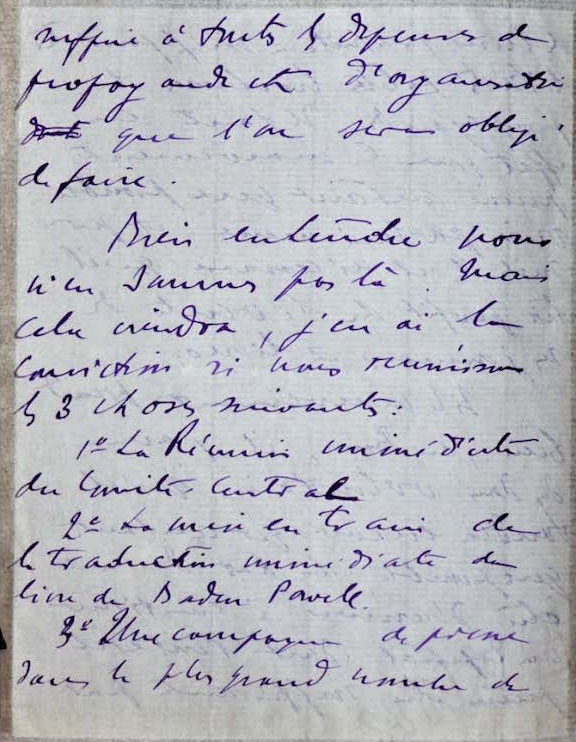 suffire à toutes les dépenses de
propagande et d'organisation
que l'on sera obligé
de faire.
Bien entendu nous
n'en sommes pas là. Mais
cela viendra, j'en ai la
conviction si nous réunissons
les 3 choses suivantes :
1º La Réunion immédiate
du Comité Central
2º La mise en train de
la traduction immédiate du
livre de Baden Powell.
3º Une campagne de presse
dans le plus grand nombre de